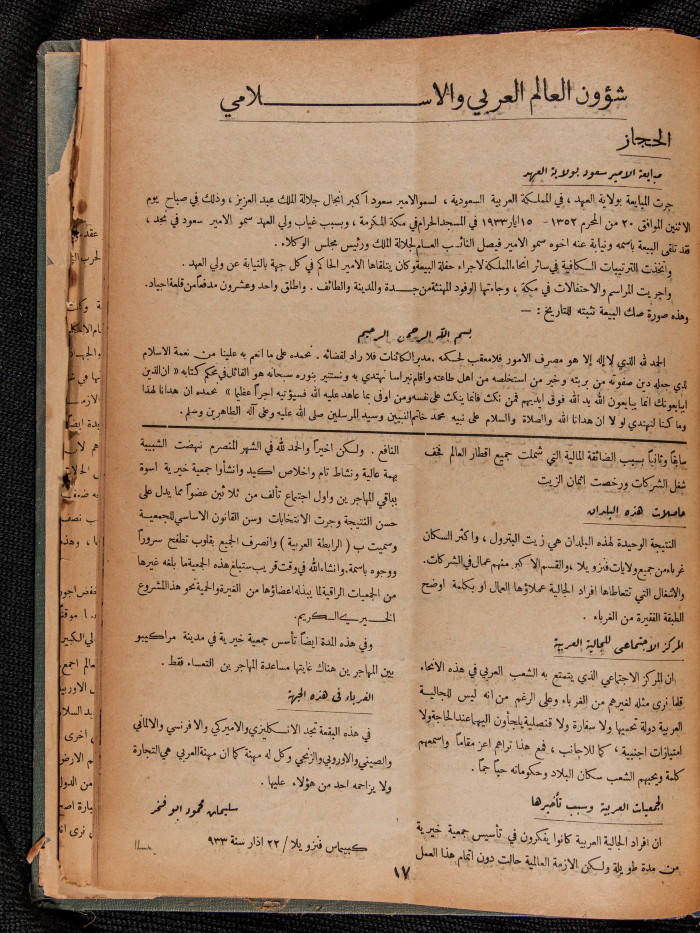 شؤون العالم العربي والاسـلامي
الحجاز
مبايعة الامير سعود بولاية العهد
جرت المبايعة بولاية العهد ، في المملكة العربية السعودية ، لسمو الامير سعود أكبر انجال جلالة الملك عبد العزيز ، وذلك في صباح يوم
الاثنين الموافق ٢٠ من المحرم ١٣٥٢ – ١٥ ايار ١٩٣٣ في المسجد الحرام في مكة المكرمة ، وبسبب غياب ولي العهد سمو الامير سعود في نجد ،
فقد تلقى البيعة باسمه ونيابة عنه اخوه سمو الامير فيصل النائب العام لجلالة الملك ورئيس مجلس الوكلاء .
واتخذت الترتيبات الكافية في سائر انحاء المملكة لاجراء حفلة البيعة وكان يتلقاها الامير الحاكم في كل جهة بالنيابة عن ولي العهد .
واجريت المراسم والاحتفالات في مكة ، وجاءتها الوفود المهنئة من جدة والمدينة والطائف . واطلق واحد وعشرون مدفعاً من قلعة اجياد.
وهذه صورة صك البيعة نثبته للتاريخ : —
بسم الله الرحمن الرحيم
الحمد لله الذي لا اله إلا هو مصرف الامور فلا معقب لحكمه . مدبر الكائنات فلا راد لقضائه . نحمده على ما انعم به علينا من نعمة الاسلام
الذي جعله دين صفوته من بريته وخير من استخلصه من اهل طاعته واقام نبراسا نهتدي به ونستنير بنوره سبحانه هو القائل في محكم كتابه « ان الذين
يبايعونك انما يبايعون الله يد الله فوق ايديهم فمن نكث فانما ينكث على نفسه ومن اوفى بما عاهد عليه الله فسيؤتيه اجراً عظيما » نحمده ان هدانا لهذا
وما كنا لنهتدي لو لا ان هدانا الله والصلاة والسلام على نبيه محمد خاتم النبيين وسيد المرسلين صلى الله عليه وعلى آله الطاهرين وسلم .
سابقاً وثانياً بسبب الضائقة المالية التي شملت جميع اقطار العالم فخف
شغل الشركات ورخصت اثمان الزيت
حاصلات هذه البلدان
النتيجة الوحيدة لهذه البلدان هي زيت البترول ، واكثر السكان
غرباء من جميع ولايات فنزويلا ، والقسم الا كبر منهم عمال في الشركات .
والاشغال التي تتعاطاها افراد الجالية عملاؤها العمال او بكلمة اوضح
الطبقة الفقيرة من الغرباء .
المركز الاجتماعي للجالية العربية
ان المركز الاجتماعي الذي يتمتع به الشعب العربي في هذه الانحاء
قلما نرى مثله لغيرهم من الغرباء وعلى الرغم من انه ليس للجالية
العربية دولة تحميها ولا سفارة ولا قنصلية يلجأون اليها عند الحاجة ولا
امتيازات اجنبية ، كما للاجانب ، فمع هذا تراهم اعز مقاماً واسمعهم
كلمة ويحبهم الشعب سكان البلاد وحكوماته حباً جماً .
الجمعيات العربية وسبب تأخيرها
ان افراد الجالية العربية كانوا يفكرون في تأسيس جمعية خيرية
من مدة طويلة ولكن الازمة العالمية حالت دون اتمام هذا العمل
النافع . ولكن اخيراً والحمد لله في الشهر المنصرم نهضت الشبيبة
بهمة عالية ونشاط تام واخلاص اكيد وانشأوا جمعية خيرية اسوة
بباقي المهاجرين واول اجتماع تألف من ثلاثين عضواً مما يدل على
حسن النتيجة وجرت الانتخابات وسن القانون الاساسي للجمعية
وسميت ب ( الرابطة العربية ) وانصرف الجميع بقلوب تطفح سروراً
ووجوه باسمة . وانشاء الله في وقت قريب ستبلغ هذه الجمعية ما بلغه غيرها
من الجمعيات الراقية لما يبذله اعضاؤها من الغيرة والحمية نحو هذا المشروع
الخـيري الكـريم .
وفي هذه المدة ايضاً تأسس جمعية خيرية في مدينة مراكيبو
بين المهاجرين هناك غايتها مساعدة المهاجرين التعساء فقط .
الغرباء في هذه الجهة
في هذه البقعة تجد الانكليزي والاميركي والافرنسي والالماني
والصيني والاوروبي والزنجي وكل له مهنة كما ان مهنة العربي هي التجارة
ولا يزاحمه احد من هؤلاء عليها .
سليمان محمود ابو فخر
كبيماس فنزويلا / ٢٢ اذار سنة ٩٣٣
١٧